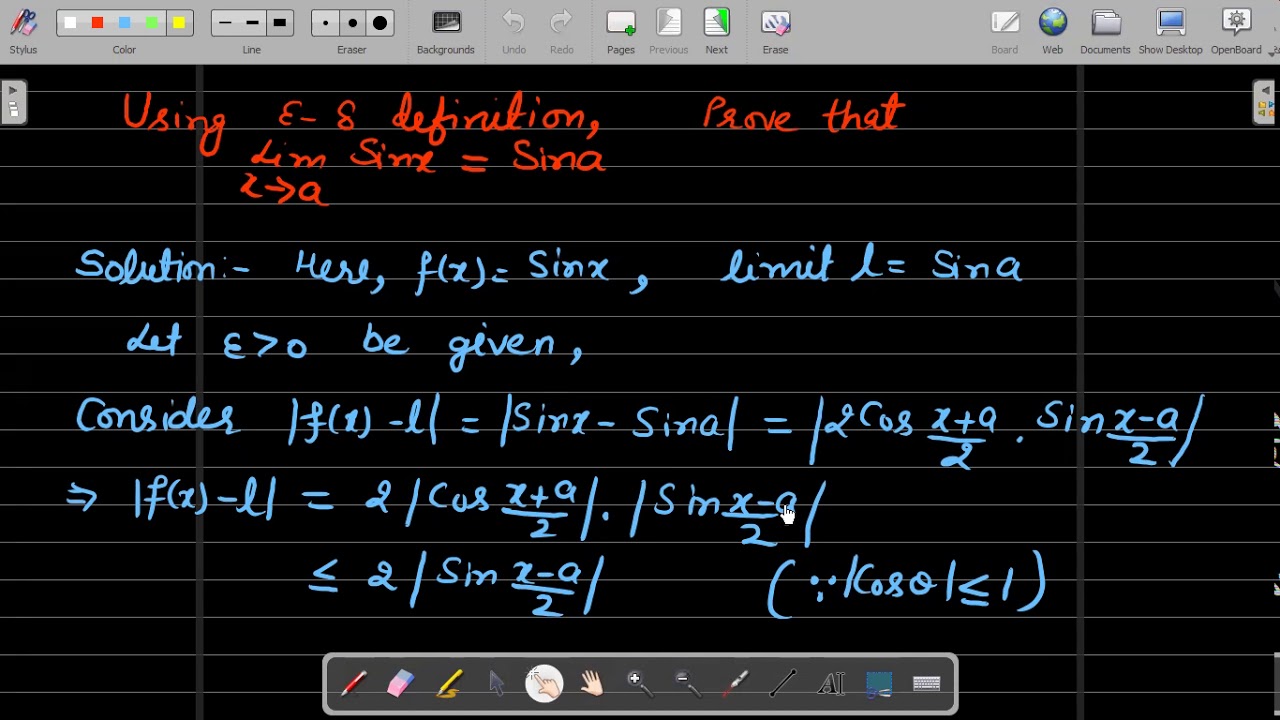 Stylus Color Line Eraser Backgrounds Undo Redo Pages Previous Next Erase Board Web Documents Show Desktop OpenBoard
Using ε-δ definition, Prove that
Lim Sinx = Sina
x→a
Solution:- Here, f(x)= Sinx, limit l= Sina
Let ε>0 be given,
Consider |f(x)-l| = |Sinx - Sina| = |2Cos (x+a)/2 . Sin (x-a)/2|
⇒ |f(x)-l| = 2|Cos (x+a)/2| . |Sin (x-a)/2|
≤ 2|Sin (x-a)/2| (∵|Cosθ|≤1)
AI